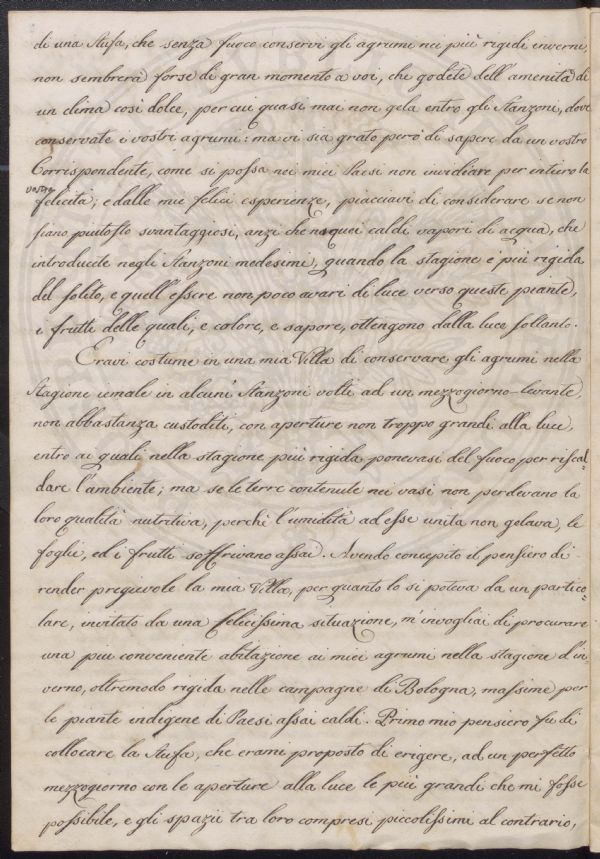 di una Stufa, che senza fuoco conservi gli agrumi nei più rigidi inverni,
non sembrerà forse di gran momento a voi, che godete dell'amenità di
un clima così dolce, per cui quasi mai non gela entro gli Stanzoni, dove
conservate i vostri agrumi: ma vi sia grato però di sapere da un vostro
Corrispondente, come si possa nei miei Paesi non invidiare per intiero la
vostra
felicità; e dalle mie felici esperienze, piacciavi di considerare se non
siano piutosto svantaggiosi, anzi che no quei caldi vapori di acqua, che
introducete negli Stanzoni medesimi, quando la stagione è più rigida
del solito, e quell'essere non poco avari di luce verso queste piante,
i frutti delle quali, e colore, e sapore, ottengono dalla luce soltanto.
Eravi costume in una mia Villa di conservare gli agrumi nella
Stagione iemale in alcuni Stanzoni volti ad un mezzogiorno-levante,
non abbastanza custoditi, con aperture non troppo grandi alla luce,
entro ai quali nella stagione più rigida ponevasi del fuoco per riscal=
dare l'ambiente; ma se le terre contenute nei vasi non perdevano la
loro qualità nutritiva, perchè l'umidità ad esse unita non gelava, le
foglie, ed i frutti soffrivano assai. Avendo concepito il pensiero di
render pregievole la mia Villa, per quanto lo si poteva da un partico=
lare, invitato da una felicissima situazione, m'invogliai di procurare
una più conveniente abitazione ai miei agrumi nella stagione d'in
verno, oltremodo rigida nelle campagne di Bologna, massime per
le piante indigene di Paesi assai caldi. Primo mio pensiero fu di
collocare la Stufa, che erami proposto di erigere, ad un perfetto
mezzogiorno con le aperture alla luce le più grandi che mi fosse
possibile, e gli spazii tra loro compresi piccolissimi al contrario,